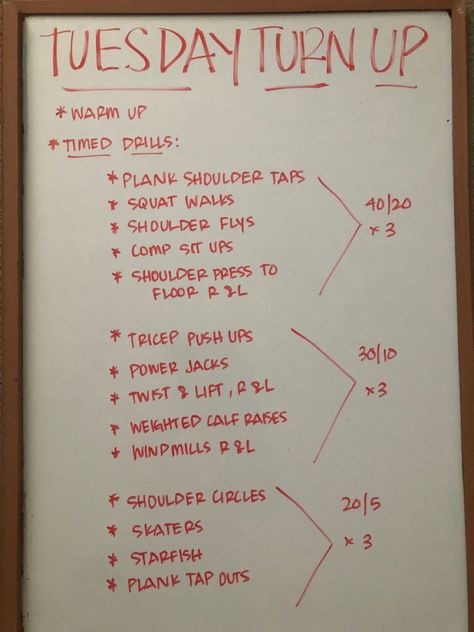 TUESDAY TURN UP
* WARM UP
* TIMED DRILLS:
* PLANK SHOULDER TAPS
* SQUAT WALKS
* SHOULDER FLYS
* COMP SIT UPS
* SHOULDER PRESS TO
FLOOR R & L
40/20
x 3
* TRICEP PUSH UPS
* POWER JACKS
* TWIST & LIFT, R & L
* WEIGHTED CALF RAISES
* WINDMILLS R & L
30/10
x3
* SHOULDER CIRCLES
* SKATERS
* STARFISH
* PLANK TAP OUTS
20/5
x 3